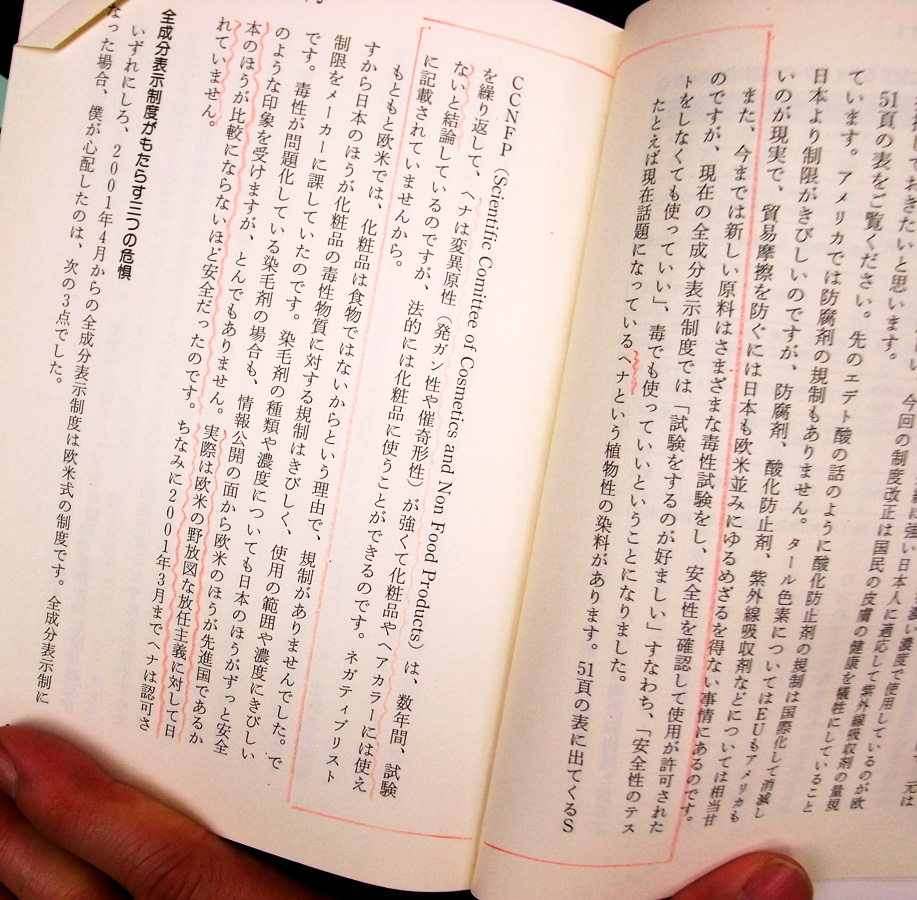 しておきたいと思います。
51頁の表をご覧ください。先のエデト酸の話のように酸化防止剤の規制は国際化して消滅し
ています。アメリカでは防腐剤の規制もありません。タール色素についてはEUもアメリカも
日本より制限がきびしいのですが、防腐剤、酸化防止剤、紫外線吸収剤などについては相当甘
いのが現実で、貿易摩擦を防ぐには日本も欧米並みにゆるめざるを得ない事情にあるのです。
また、今までは新しい原料はさまざまな毒性試験をし、安全性を確認して使用が許可された
のですが、現在の全成分表示制度では「試験をするのが好ましい」すなわち、「安全性のテス
トをしなくても使っていい」、毒でも使っていいということになりました。
たとえば現在話題になっているヘナという植物性の染料があります。51頁の表に出てくるS
CCNFP（Scientific Comittee of Cosmetics and Non Food Products）は、数年間、試験
を繰り返して、ヘナは変異原性（発ガン性や催奇形性）が強くて化粧品やヘアカラーには使え
ないと結論しているのですが、法的には化粧品に使うことができるのです。ネガティブリスト
に記載されていませんから。
もともと欧米では、化粧品は食物ではないからという理由で、規制がありませんでした。で
すから日本のほうが化粧品の毒性物質に対する規制はきびしく、使用の範囲や濃度にきびしい
制限をメーカーに課していたのです。染毛剤の種類や濃度についても日本のほうがずっと安全
です。毒性が問題化している染毛剤の場合も、情報公開の面から欧米のほうが先進国であるか
のような印象を受けますが、とんでもありません。実際は欧米の野放図な放任主義に対して日
本のほうが比較にならないほど安全だったのです。ちなみに2001年3月までヘナは認可さ
れていません。
全成分表示制度がもたらす三つの危惧
いずれにしろ、2001年4月からの全成分表示制度は欧米式の制度です。全成分表示制に
なった場合、僕が心配したのは、次の3点でした。